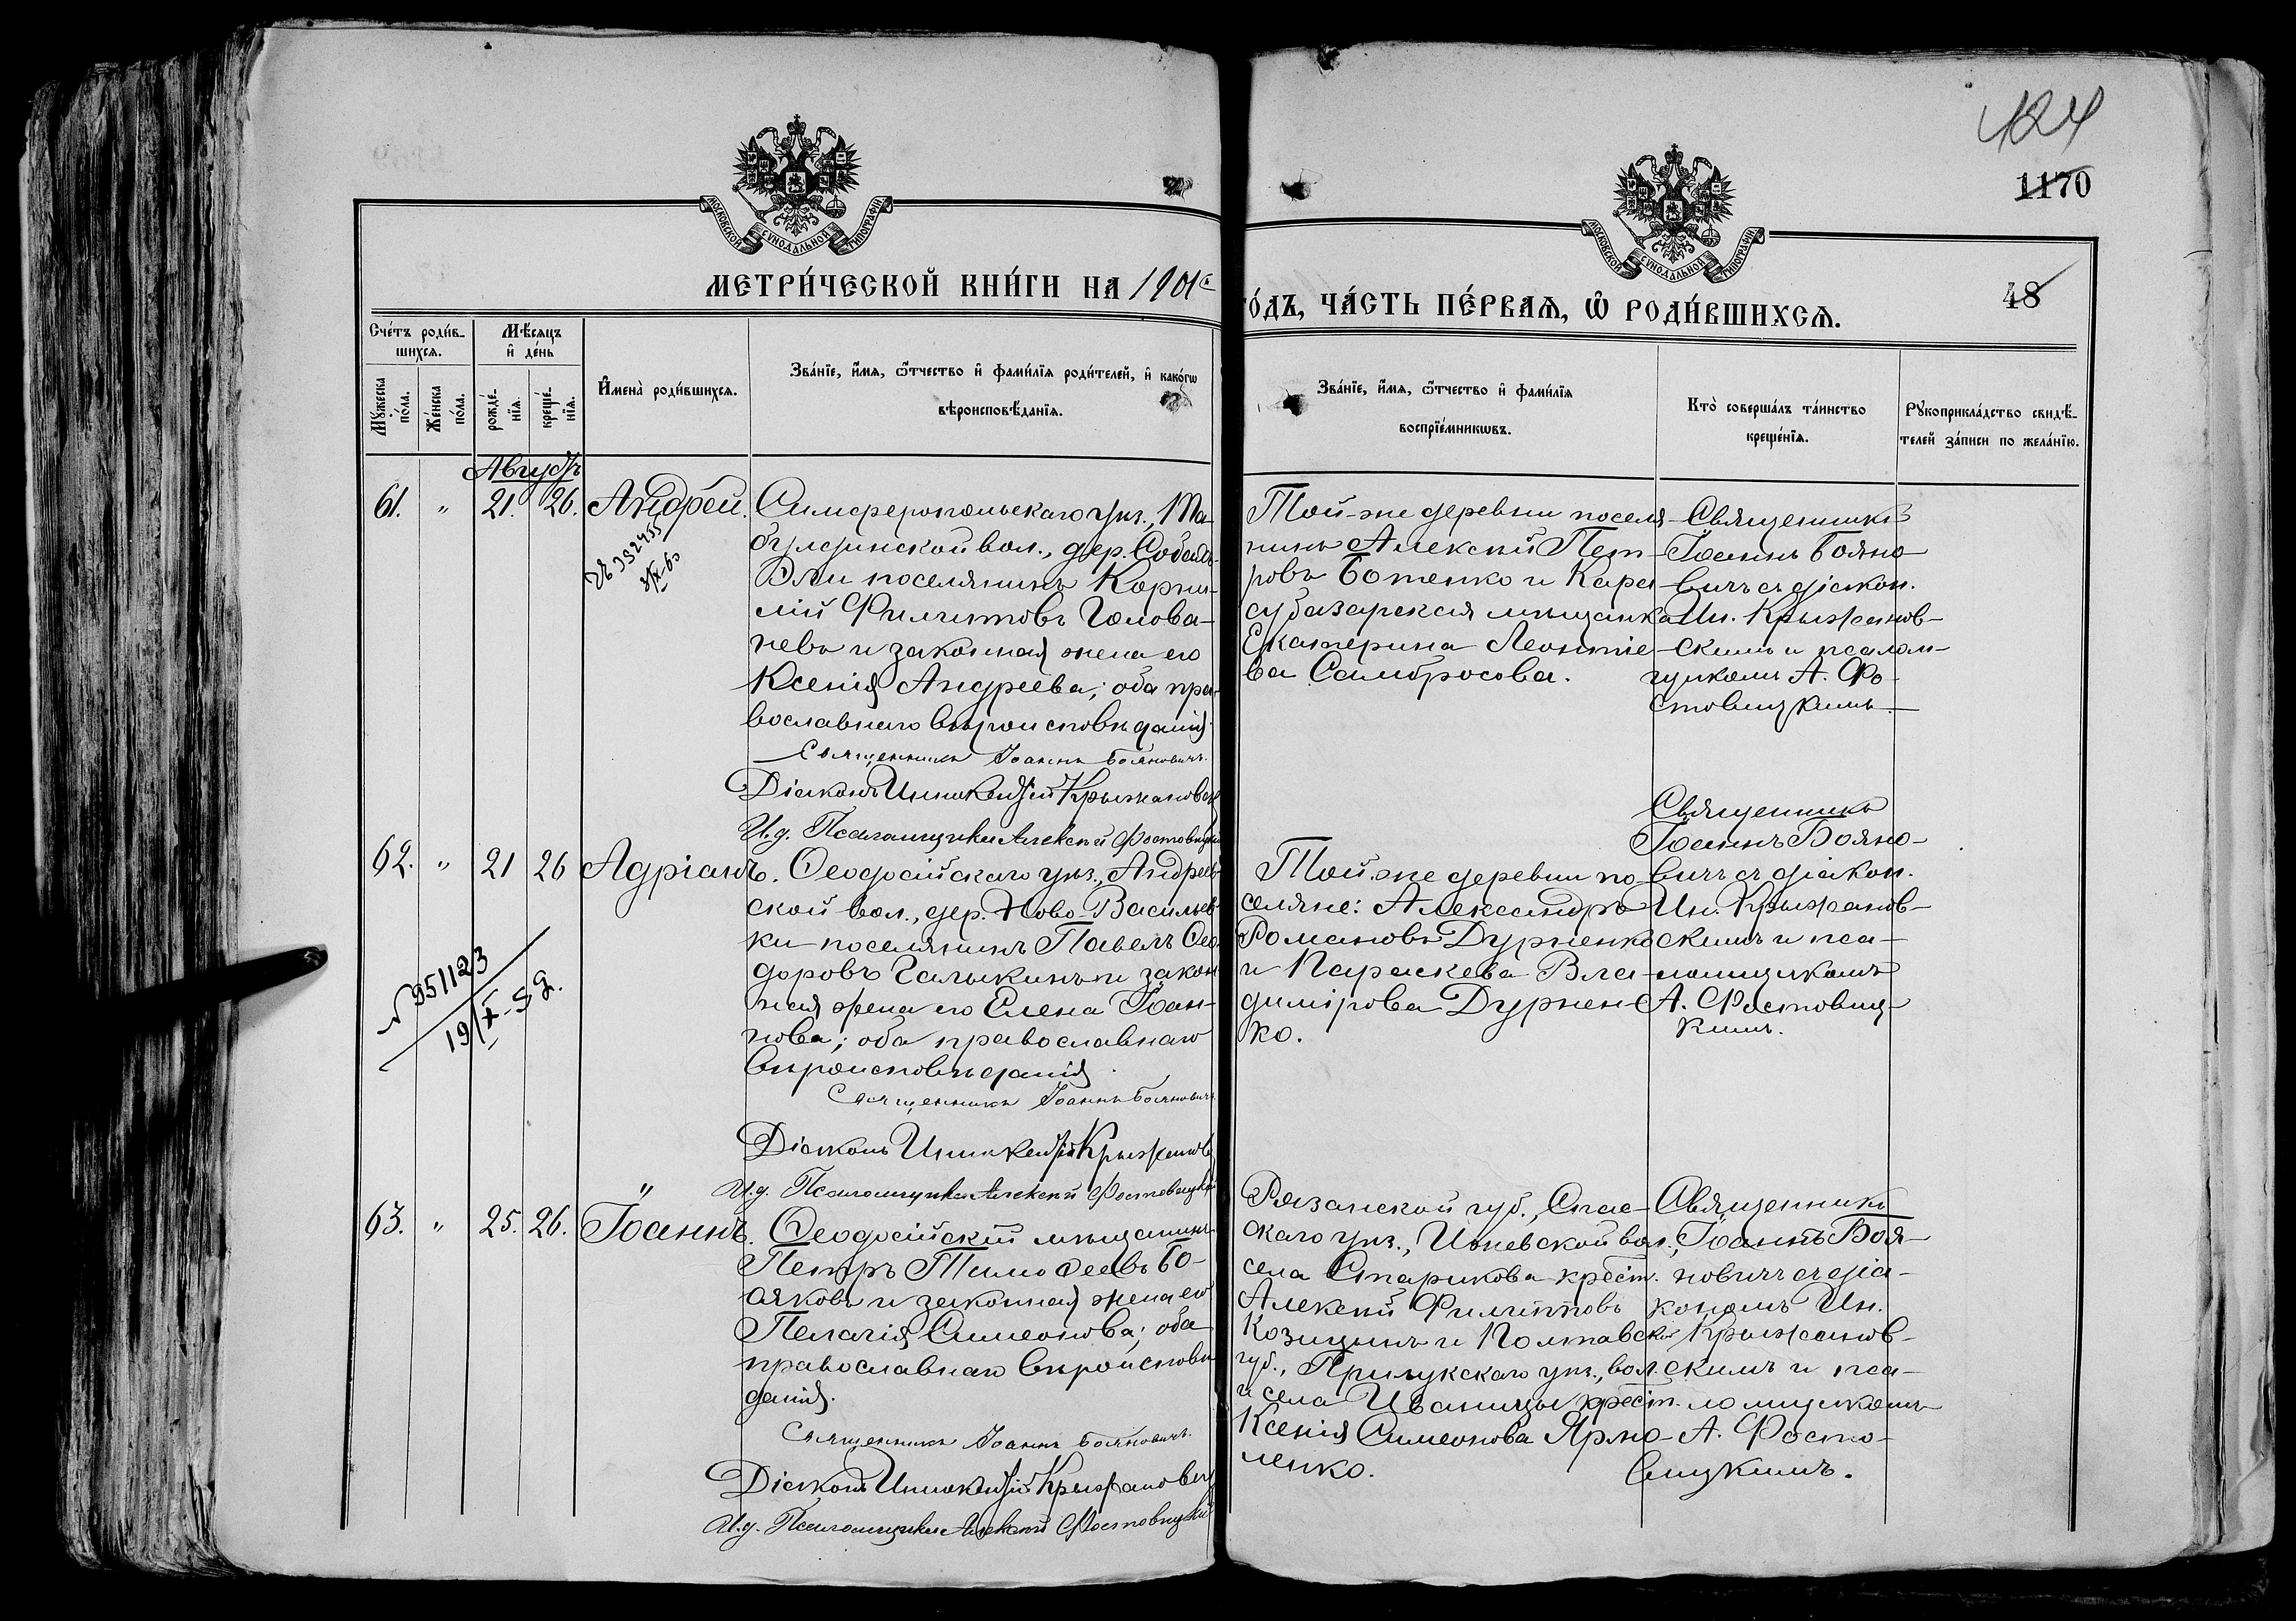 424
1170
МОСКОВСКОЙ СѴНОДАЛЬНОЙ ТИПОГРАФІИ
МОСКОВСКОЙ СѴНОДАЛЬНОЙ ТИПОГРАФІИ
МЕТРИ́ЧЕСКОЙ КНИ́ГИ НА 1901й
ГО́ДЪ, ЧА́СТЬ ПЕ́РВАѦ, Ѡ҆ РОДИ́ВШИХСѦ.
48
Сче́тъ роди́в-
шихсѧ.
Мѹ́жеска по́ла.
Же́нска по́ла.
Мѣ́сѧцъ
и҆ де́нь
рожде́-нїѧ.
креще́-нїѧ.
И҆мена̀ роди́вшихсѧ.
Зва́нїе, и҆́мѧ, ѻ҆́тчество и҆ фами́лїѧ роди́телей, и҆ како́гѡ
вѣроисповѣ́данїѧ.
Зва́нїе, и҆́мѧ, ѻ҆́тчество и҆ фами́лїѧ
воспрїе́мникѡвъ.
Кто̀ соверша́лъ та́инство
креще́нїѧ.
Рꙋкоприкла́дство свидѣ́-
телей за́писи по жела́нїю.
Августъ
61. " 21. 26. Андрей.
Симферопольскаго уѣз., Та-
булдинской вол., дер. Собашъ-
Эли поселянинъ Корни-
лій Филиповъ Голова-
чевъ и законная жена его
Ксенія Андреева; оба пра-
вославнаго вѣроисповѣданія.
Священникъ Іоаннъ Бояновичъ.
Діаконъ Иннокентій Крыжановск
И.д. Псаломщика Алексѣй Фостовицкій
Той-же деревни поселя-
нинъ Алексѣй Пет-
ровъБотенко и Кара-
субазарская мѣщанка
Екатерина Леонтіе-
ва Самбросова.
Священникъ
Іоаннъ Бояно-
вичъ съ діакон.
Ин. Крыжанов-
скимъ и псалом-
щикомъ А. Фо-
стовицкимъ.
62. " 21 26 Адріанъ.
№ 951123
19/X-52.
Ѳеодосійскаго уѣз., Андреев-
ской вол., дер. Ново-Васильев-
ки поселянинъ Павелъ Ѳео-
доровъ Галыкинъ и закон-
ная жена его Елена Іоан-
нова; оба православнаго
вѣроисповѣданія.
Священникъ Іоаннъ Бояновичъ
Діаконъ Иннокентій Крыжановъ
И.д. Псаломщика Алексѣй Фостовицкій
Той-же деревни по-
селяне: Александръ
Романовъ Дурненко
и Параскева Вла-
димірова Дурнен-
ко.
Священникъ
Іоаннъ Бояно-
вичъ съ діакон.
Ин. Крыжанов-
скимъ и пса-
ломщикомъ
А. Фостовиц-
кимъ.
"
63. " 25. 26. Іоаннъ.
Ѳеодосійскій мѣщанинъ
Петръ Тимоѳеевъ Бо-
аяковъ и законная жена его
Пелагія Симеонова; оба
православнаго вѣроисповѣ-
данія.
Священникъ Іоаннъ Бояновичъ.
Діаконъ Иннокентій Крыжановск
И.д. Псаломщика Алексѣй Фостовицкій
Рязанской губ., Спас-
скаго уѣз., Ижевской вол.,
села Старикова крест.
Алексѣй Филипповъ
Козицинъ и Полтавской
губ., Прилукскаго уѣз., вол.
и села Иваницы крест.
Ксенія Симеонова Ярмо-
ленко.
Священникъ
Іоаннъ Боя-
новичъ съ діа-
кономъ Ин.
Крыжанов-
скимъ и пса-
ломщикомъ
А. Фосто-
вицкимъ.